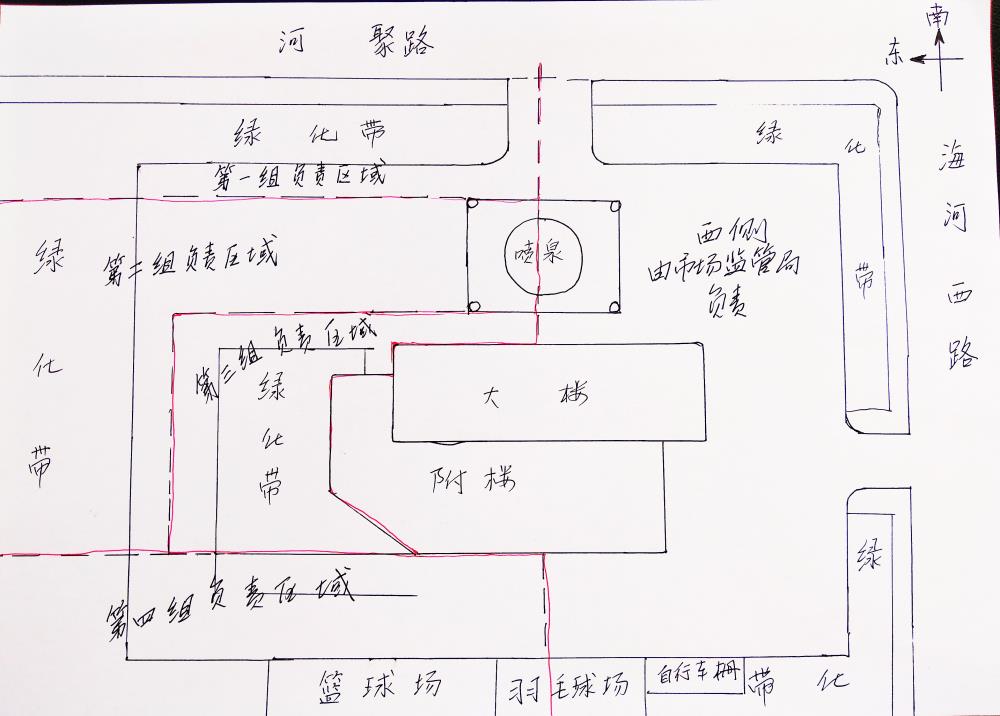 南
东
河 聚路
海河西路
绿 化 带
绿 化 带
第一组负责区域
绿 化 带
第二组负责区域
喷泉
西侧
由市场监管局
负责
第三组负责区域
绿化带
大 楼
附楼
绿
第四组负责区域
篮球场
羽毛球场
自行车棚
带 化